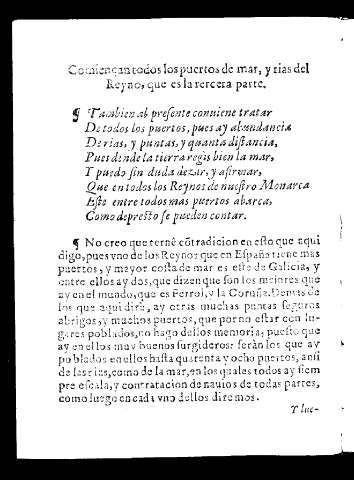 Comiençan todos los puertos de mar, y rias del
Reyno, que es la tercera parte.
¶ Tambien al presente conuiene tratar
De todos los puertos, pues ay abundancia
De rias, y puntas, y quanta distancia,
Pues donde la tierra regis bien la mar,
Y puedo sin duda dezir, y afirmar,
Que en todos los Reynos de nuestro Monarca
Este entre todos mas puertos abarca,
Como de presto se pueden contar.
¶ No creo que ternè cõtradicion en esto que aqui
digo, pues vno de los Reynos que en España tiene mas
puertos, y mayor costa de mar es este de Galicia, y
entre ellos ay dos, que dizen que son los mejores que
ay en el mundo, que es Ferrol, y la Coruña. Demas de
los que aqui dirè, ay otras muchas puntas seguras
abrigos, y muchos puertos, que por no estar con lu-
gares poblados, no hago dellos memoria, puesto que
ay en ellos muy buenos surgideros: seràn los que ay
poblados en ellos hasta quarenta y ocho puertos, ansi
de las rias, como de la mar, en los quales todos ay siem
pre escala, y contratacion de nauios de todas partes,
como luego en cada vno dellos diremos.
Y lue-